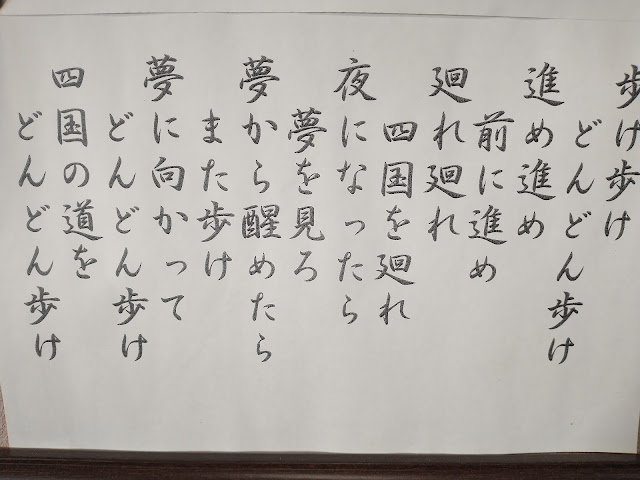 歩け歩け
どんどん歩け
進め進め
前に進め
廻れ廻れ
四国を廻れ
夜になったら
夢を見ろ
夢から醒めたら
また歩け
夢に向かって
どんどん歩け
四国の道を
どんどん歩け